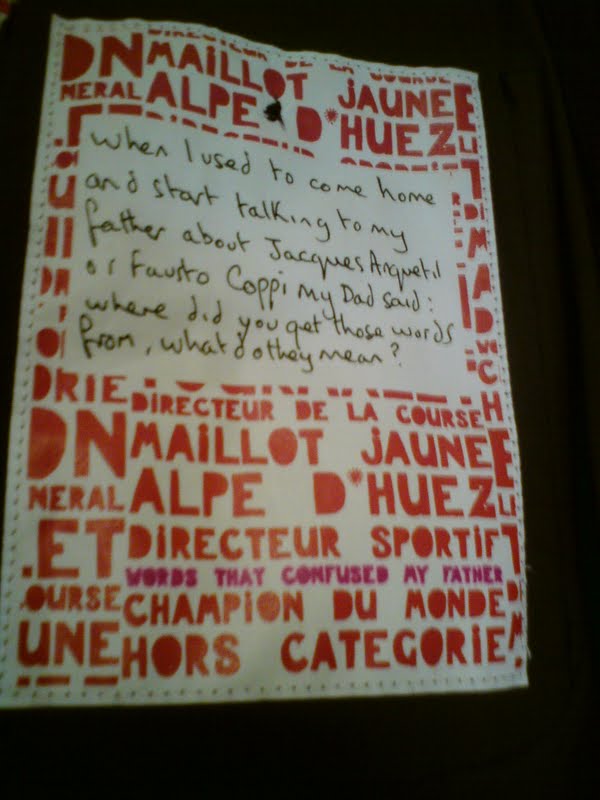 DIRECTEUR DE LA COURSE
DN MAILLOT JAUNE E
NERAL ALPE D'HUEZ LI
when I used to come home
and start talking to my
father about Jacques Anquetil
or Fausto Coppi my Dad said:
where did you get those words
from, what do they mean?
DRIE
DIRECTEUR DE LA COURSE
DN MAILLOT JAUNE E
NERAL ALPE D'HUEZ LI
.ET DIRECTEUR SPORTIF
WORDS THAT CONFUSED MY FATHER
OURSE CHAMPION DU MONDE
UNE HORS CATEGORIE